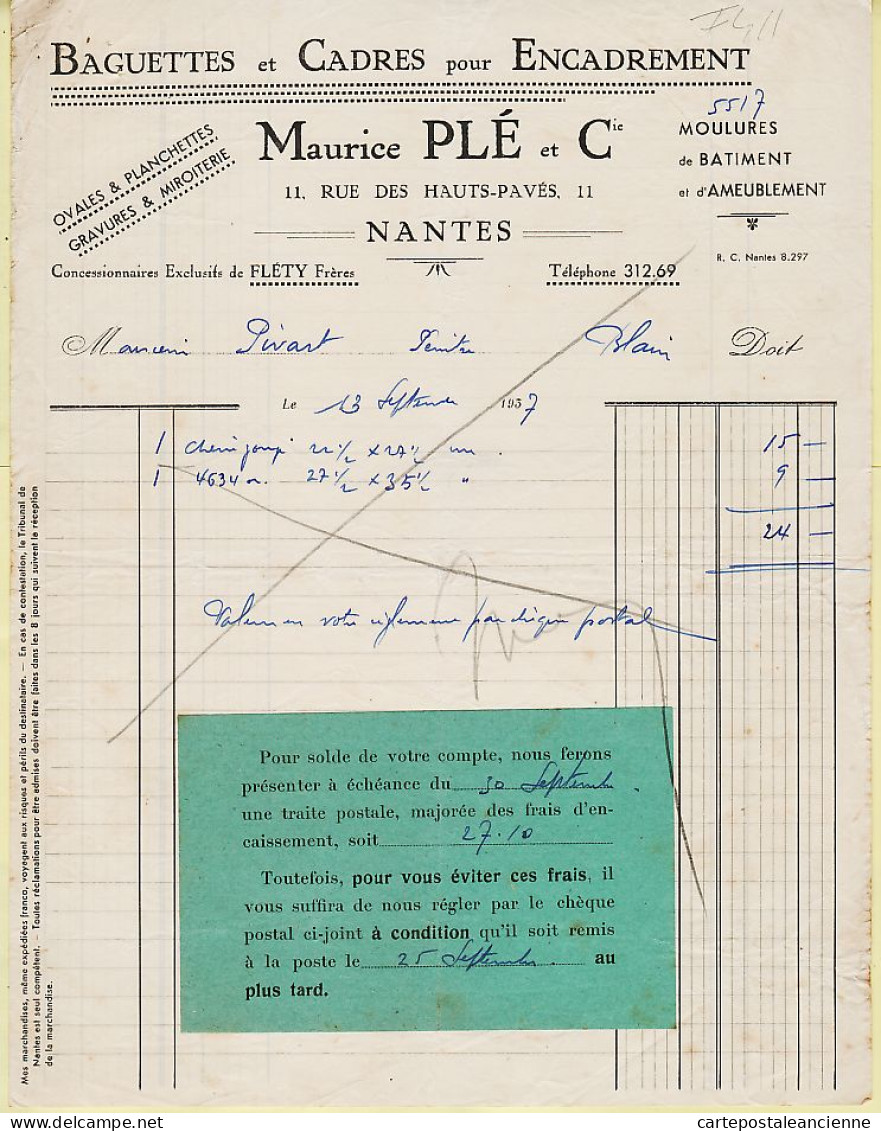 BAGUETTES et CADRES pour ENCADREMENT
OVALES & PLANCHETTES
GRAVURES & MIROITERIE
Maurice PLÉ et Cie
11, RUE DES HAUTS-PAVÉS, 11
NANTES
5517
MOULURES
de BATIMENT
et d'AMEUBLEMENT
R. C. Nantes 8.297
Concessionnaires Exclusifs de FLÉTY Frères
Téléphone 312.69
Pivart Peintre Blain Doit
Le 13 Septembre 1937
1 22 1/2 x 27 1/2 15 —
1 4634 27 1/2 x 35 1/2 " 9 —
24 —
Valeur en votre règlement par chèque postal
Pour solde de votre compte, nous ferons
présenter à échéance du 30 Septembre
une traite postale, majorée des frais d'en-
caissement, soit 27.10
Toutefois, pour vous éviter ces frais, il
vous suffira de nous régler par le chèque
postal ci-joint à condition qu'il soit remis
à la poste le 25 Septembre au
plus tard.
Mes marchandises, même expédiées franco, voyagent aux risques et périls du destinataire. — En cas de contestation, le Tribunal de
Nantes est seul compétent. — Toutes réclamations pour être admises doivent être faites dans les 8 jours qui suivent la réception
de la marchandise.
cartepostaleancienne